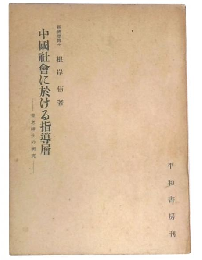 中國社會に於ける指導層
經濟學博士 根岸佶著
平和書房刊